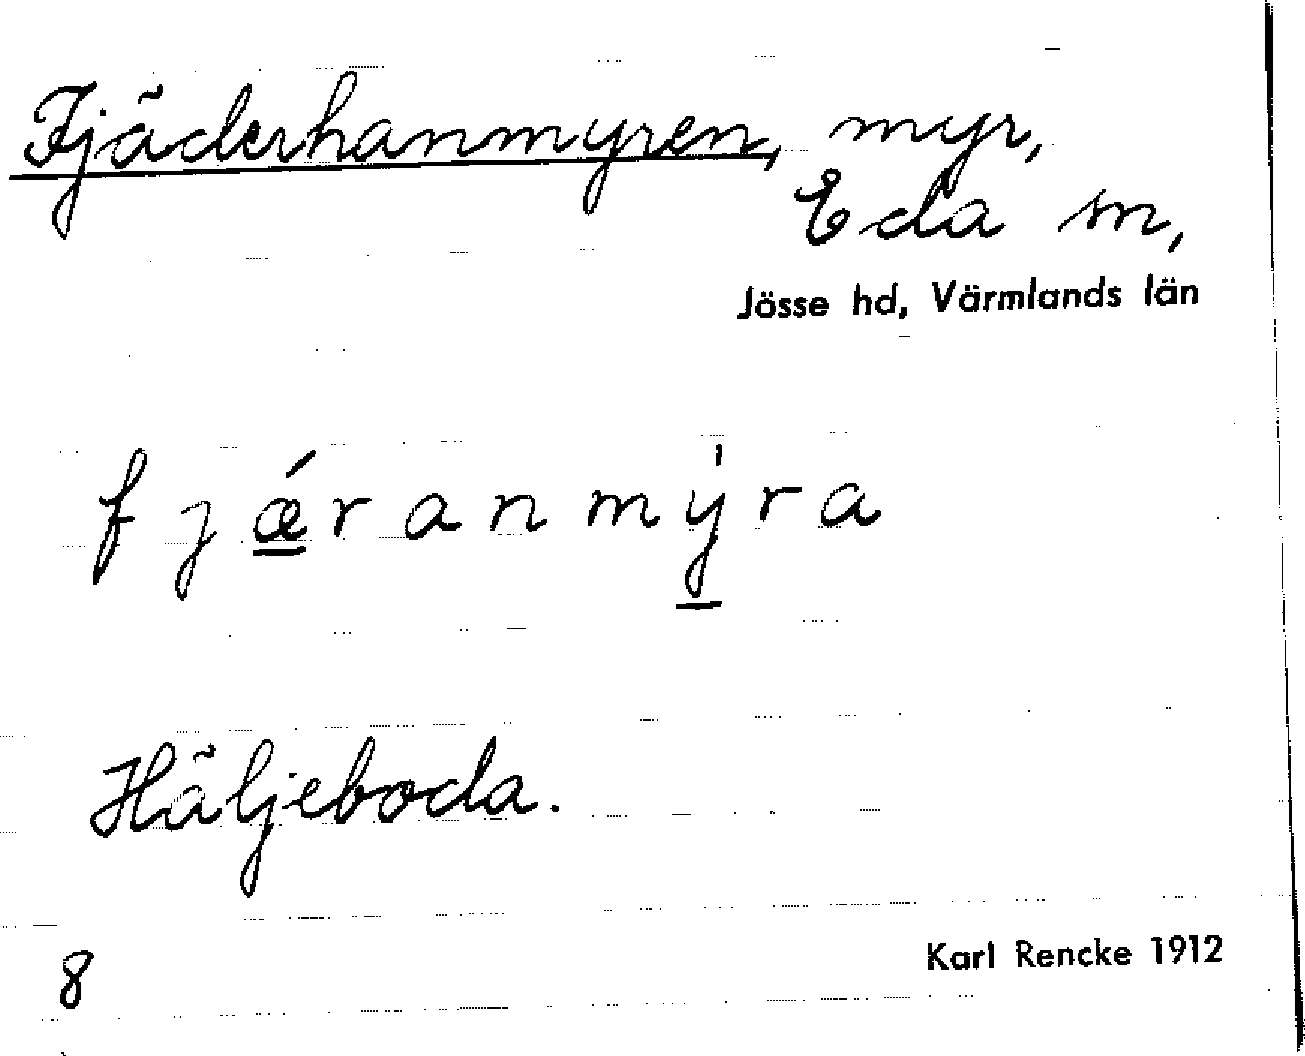 Fjäderhanmyren, myr,
Eda sn,
Jösse hd, Värmlands län
fjǽranmýra
Häljeboda.
8
Karl Rencke 1912